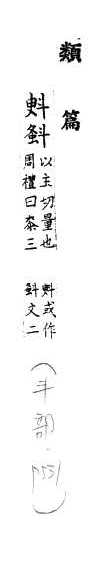 類篇
斞
以主切量也
周禮曰桼三
斞或作
文二
(斗部 153)